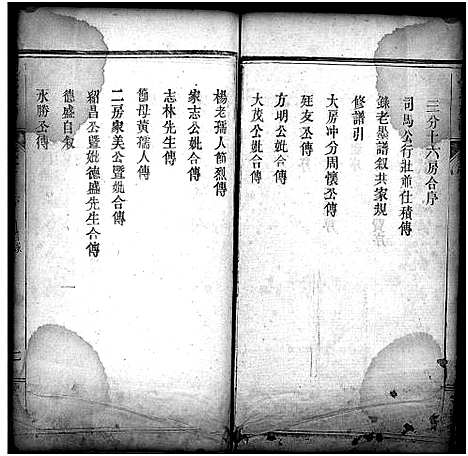 三分十六房合序
司馬公行狀並仕積傳
錄老墨譜叙共家規
修譜引
大房冲分周懷公傳
廷友公傳
方明公妣合傳
大茂公妣合傳
楊老孺人節烈傳
家志公妣合傳
志林先生傳
節母黃孺人傳
二房家美公暨妣合傳
紹昌公暨妣德盛先生合傳
德盛自叙
永勝公傳